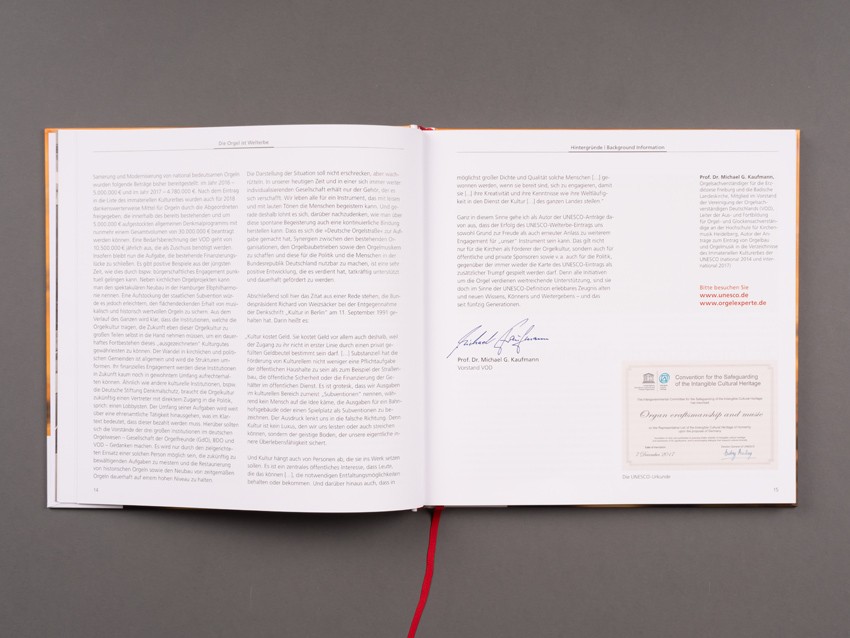 Die Orgel ist Welterbe
Sanierung und Modernisierung von national bedeutsamen Orgeln
wurden folgende Beträge bisher bereitgestellt: Im Jahr 2016 –
5.000.000 € und im Jahr 2017 – 4.780.000 €. Nach dem Eintrag
in die Liste des Immateriellen Kulturerbes wurden auch für 2018
dankenswerterweise Mittel für Orgeln durch die Abgeordneten
freigegeben, die innerhalb des bereits bestehenden und um
5.000.000 € aufgestockten allgemeinen Denkmalprogramms mit
nunmehr einem Gesamtvolumen von 30.000.000 € beantragt
werden können. Eine Bedarfsberechnung der VOD geht von
10.500.000 € jährlich aus, die als Zuschuss benötigt werden.
Insofern bleibt nun die Aufgabe, die bestehende Finanzierungs-
lücke zu schließen. Es gibt positive Beispiele aus der jüngsten
Zeit, wie dies durch bspw. bürgerschaftliches Engagement punk-
tuell gelingen kann. Neben kirchlichen Orgelprojekten kann
man den spektakulären Neubau in der Hamburger Elbphilharmo-
nie nennen. Eine Aufstockung der staatlichen Subvention wür-
de es jedoch erleichtern, den flächendeckenden Erhalt von musi-
kalisch und historisch wertvollen Orgeln zu sichern. Aus dem
Verlauf des Ganzen wird klar, dass die Institutionen, welche die
Orgelkultur tragen, die Zukunft eben dieser Orgelkultur zu
großen Teilen selbst in die Hand nehmen müssen, um ein dauer-
haftes Fortbestehen dieses „ausgezeichneten“ Kulturgutes
gewährleisten zu können. Der Wandel in kirchlichen und politi-
schen Gemeinden ist allgemein und wird die Strukturen um-
formen. Ihr finanzielles Engagement werden diese Institutionen
in Zukunft kaum noch in gewohntem Umfang aufrechterhal-
ten können. Ähnlich wie andere kulturelle Institutionen, bspw.
die Deutsche Stiftung Denkmalschutz, braucht die Orgelkultur
zukünftig einen Vertreter mit direktem Zugang in die Politik,
sprich: einen Lobbyisten. Der Umfang seiner Aufgaben wird weit
über eine ehrenamtliche Tätigkeit hinausgehen, was im Klar-
text bedeutet, dass dieser bezahlt werden muss. Hierüber sollten
sich die Vorstände der drei großen Institutionen im deutschen
Orgelwesen – Gesellschaft der Orgelfreunde (GdO), BDO und
VOD – Gedanken machen. Es wird nur durch den zielgerichte-
ten Einsatz einer solchen Person möglich sein, die zukünftig zu
bewältigenden Aufgaben zu meistern und die Restaurierung
von historischen Orgeln sowie den Neubau von zeitgemäßen
Orgeln dauerhaft auf einem hohen Niveau zu halten.
14
Die Darstellung der Situation soll nicht erschrecken, aber wach-
rütteln. In unserer heutigen Zeit und in einer sich immer weiter
individualisierenden Gesellschaft erhält nur der Gehör, der es
sich verschafft. Wir leben alle für ein Instrument, das mit leisen
und mit lauten Tönen die Menschen begeistern kann. Und ge-
rade deshalb lohnt es sich, darüber nachzudenken, wie man über
diese spontane Begeisterung auch eine kontinuierliche Bindung
herstellen kann. Dass es sich die »Deutsche Orgelstraße« zur Auf-
gabe gemacht hat, Synergien zwischen den bestehenden Or-
ganisationen, den Orgelbaubetrieben sowie den Orgelmusikern
zu schaffen und diese für die Politik und die Menschen in der
Bundesrepublik Deutschland nutzbar zu machen, ist eine sehr
positive Entwicklung, die es verdient hat, tatkräftig unterstützt
und dauerhaft gefördert zu werden.
Abschließend soll hier das Zitat aus einer Rede stehen, die Bun-
despräsident Richard von Weizsäcker bei der Entgegennahme
der Denkschrift „Kultur in Berlin“ am 11. September 1991 ge-
halten hat. Darin heißt es:
„Kultur kostet Geld. Sie kostet Geld vor allem auch deshalb, weil
der Zugang zu ihr nicht in erster Linie durch einen privat ge-
füllten Geldbeutel bestimmt sein darf. [...] Substanziell hat die
Förderung von Kulturellem nicht weniger eine Pflichtaufgabe
der öffentlichen Haushalte zu sein als zum Beispiel der Straßen-
bau, die öffentliche Sicherheit oder die Finanzierung der Ge-
hälter im öffentlichen Dienst. Es ist grotesk, dass wir Ausgaben
im kulturellen Bereich zumeist „Subventionen“ nennen, wäh-
rend kein Mensch auf die Idee käme, die Ausgaben für ein Bahn-
hofsgebäude oder einen Spielplatz als Subventionen zu be-
zeichnen. Der Ausdruck lenkt uns in die falsche Richtung. Denn
Kultur ist kein Luxus, den wir uns leisten oder auch streichen
können, sondern der geistige Boden, der unsere eigentliche in-
nere Überlebensfähigkeit sichert.
Und Kultur hängt auch von Personen ab, die sie ins Werk setzen
sollen. Es ist ein zentrales öffentliches Interesse, dass Leute,
die das können [...], die notwendigen Entfaltungsmöglichkeiten
behalten oder bekommen. Und darüber hinaus auch, dass in
Hintergründe / Background Information
möglichst großer Dichte und Qualität solche Menschen [...] ge-
wonnen werden, wenn sie bereit sind, sich zu engagieren, damit
sie [...] ihre Kreativität und ihre Kenntnisse wie ihre Weltläufig-
keit in den Dienst der Kultur [...] des ganzen Landes stellen.“
Ganz in diesem Sinne gehe ich als Autor der UNESCO-Anträge da-
von aus, dass der Erfolg des UNESCO-Welterbe-Eintrags uns
sowohl Grund zur Freude als auch erneuter Anlass zu weiterem
Engagement für „unser“ Instrument sein kann. Das gilt nicht
nur für die Kirchen als Förderer der Orgelkultur, sondern auch für
öffentliche und private Sponsoren sowie v. a. auch für die Politik,
gegenüber der immer wieder die Karte des UNESCO-Eintrags als
zusätzlicher Trumpf gespielt werden darf. Denn alle Initiativen
um die Orgel verdienen weitreichende Unterstützung, sind sie
doch im Sinne der UNESCO-Definition erlebbares Zeugnis alten
und neuen Wissens, Könnens und Weitergebens – und das
seit fünfzig Generationen.
Michael Kaufmann
Prof. Dr. Michael G. Kaufmann
Vorstand VOD
Prof. Dr. Michael G. Kaufmann,
Orgelsachverständiger für die Erz-
diözese Freiburg und die Badische
Landeskirche, Mitglied im Vorstand
der Vereinigung der Orgelsach-
verständigen Deutschlands (VOD),
Leiter der Aus- und Fortbildung
für Orgel- und Glockensachverstän-
dige an der Hochschule für Kirchen-
musik Heidelberg, Autor der An-
träge zum Eintrag von Orgelbau
und Orgelmusik in die Verzeichnisse
des Immateriellen Kulturerbes der
UNESCO (national 2014 und inter-
national 2017).
Bitte besuchen Sie
www.unesco.de
www.orgelexperte.de
Convention for the Safeguarding
of the Intangible Cultural Heritage
Organ craftsmanship and music
7 December 2017
Die UNESCO-Urkunde
15